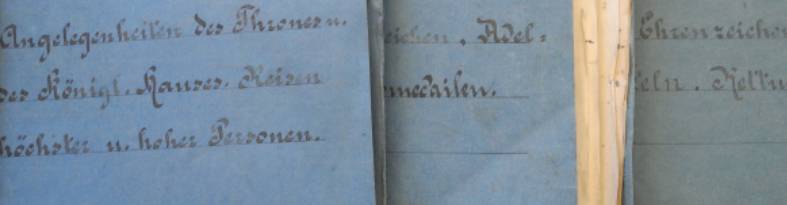 Angelegenheiten des Thrones u.
des Königl. Hauses. Reisen
höchster u. hoher Personen.
eichen, Adel-
medailen.
Ehrenzeichen
eln. Rettu